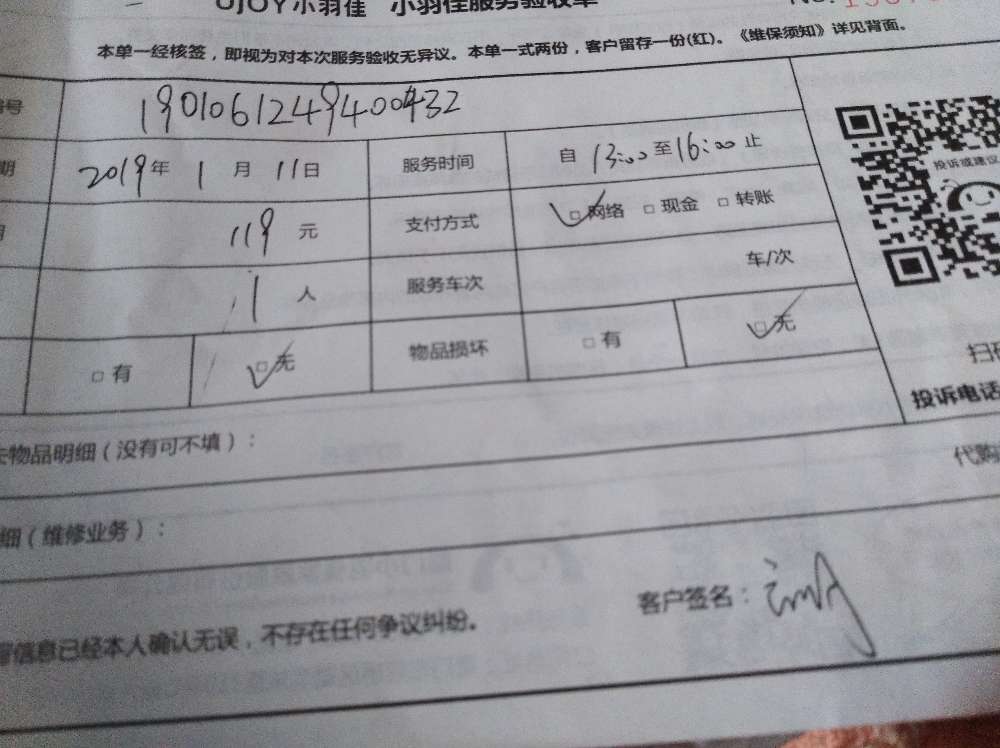 UJOY小羽佳 小羽佳服务验收单 No.
本单一经核签，即视为对本次服务验收无异议。本单一式两份，客户留存一份(红)。《维保须知》详见背面。
号 1901061249400432
期 2019年 1 月 11日 服务时间 自 13:00 至 16:00 止
119 元 支付方式 □ 网络 □ 现金 □ 转账
1 人 服务车次 车/次
□ 有 □ 无 物品损坏 □ 有 □ 无
投诉或建议
扫
投诉电话
物品明细（没有可不填）：
代购
细（维修业务）：
信息已经本人确认无误，不存在任何争议纠纷。 客户签名：